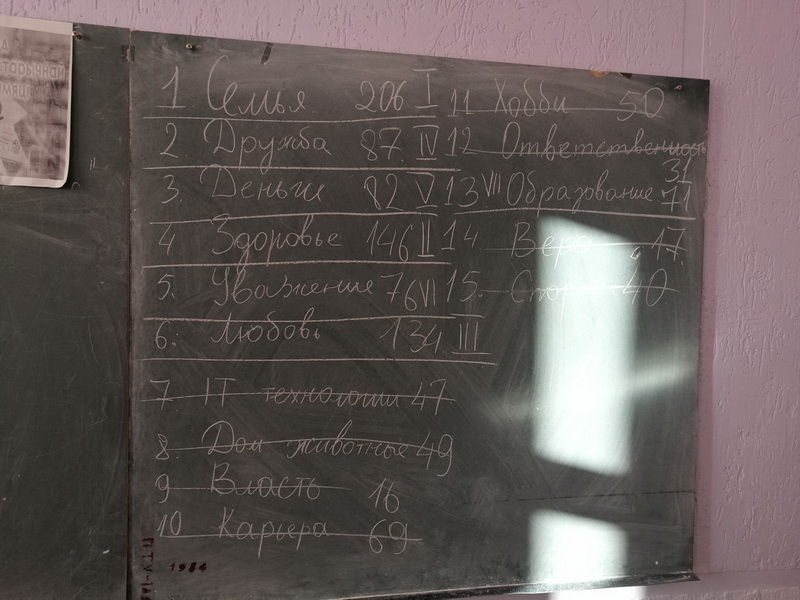 1 Семья 206 I
2 Дружба 87. IV
3. Деньги 82 V
4 Здоровье 146 II
5. Уважение 76 VI
6. Любовь 134. III
7 IT технологии 47
8. Дом животные 49
9 Власть 16
10 Карьера 69
11 Хобби 50
12 Ответственность
31
13 VII Образование. 71
14 Вера 17.
15. Спорт 40
ПТУ-
1984